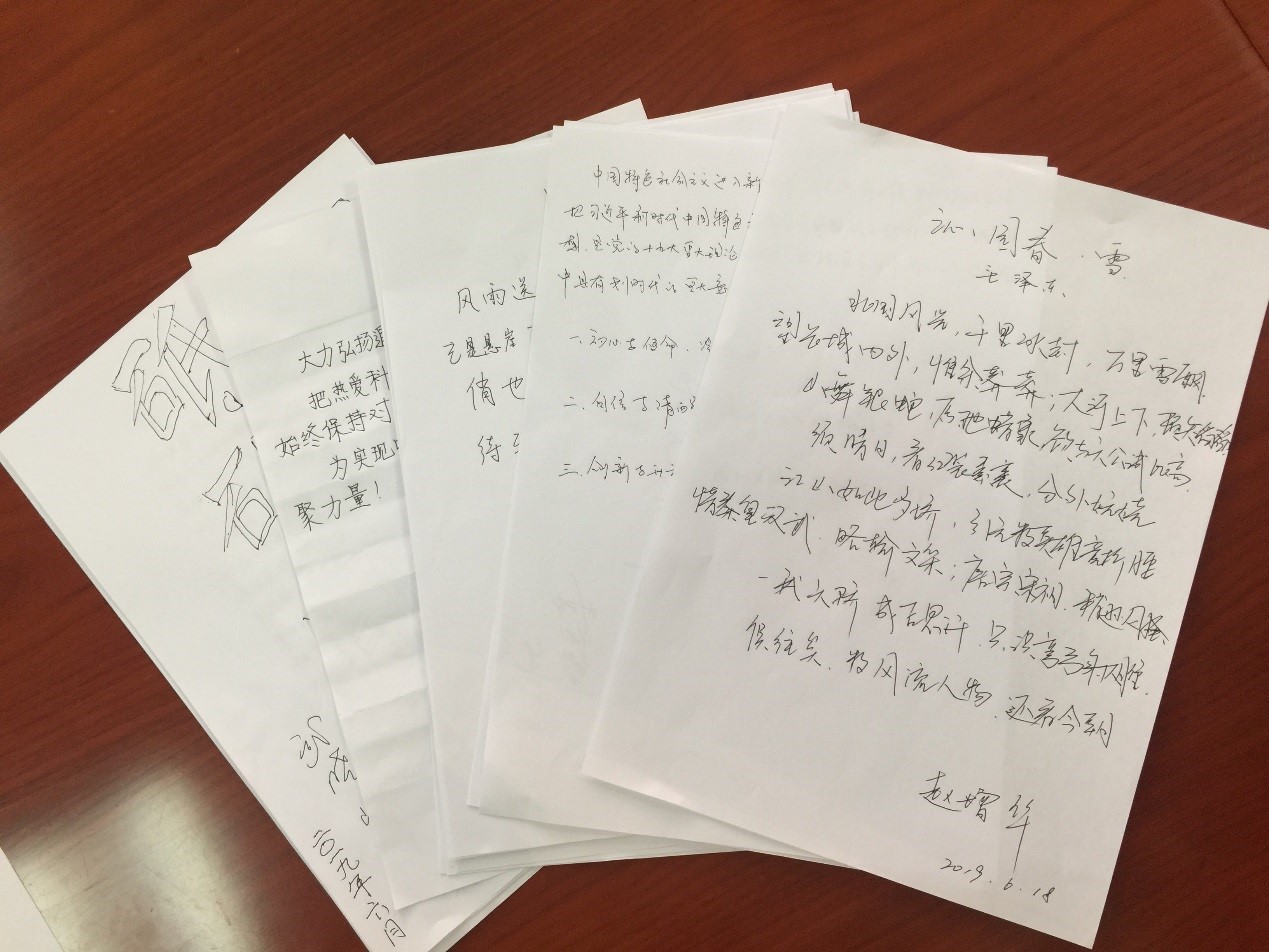 砥
大力弘扬
把热爱科
始终保持对
为实现
聚力量！
二〇一九年六月
风雨送
已是悬岸
俏也
待
中国特色社会主义进入新
把习近平新时代中国特色
想，是党的十九大重大理论
中具有划时代的重大意
一、初心与使命，
二、自信与清醒
三、创新与
沁、园春、雪
毛泽东、
北国风光，千里冰封，万里雪飘
望长城内外，惟余莽莽；大河上下，顿失滔滔
山舞银蛇，原驰蜡象，欲与天公试比高
须晴日，看红装素裹，分外妖娆
江山如此多娇，引无数英雄竞折腰
惜秦皇汉武，略输文采；唐宗宋祖，稍逊风骚
一代天骄 成吉思汗 只识弯弓射大雕
俱往矣，数风流人物，还看今朝
赵增华
2019.6.18